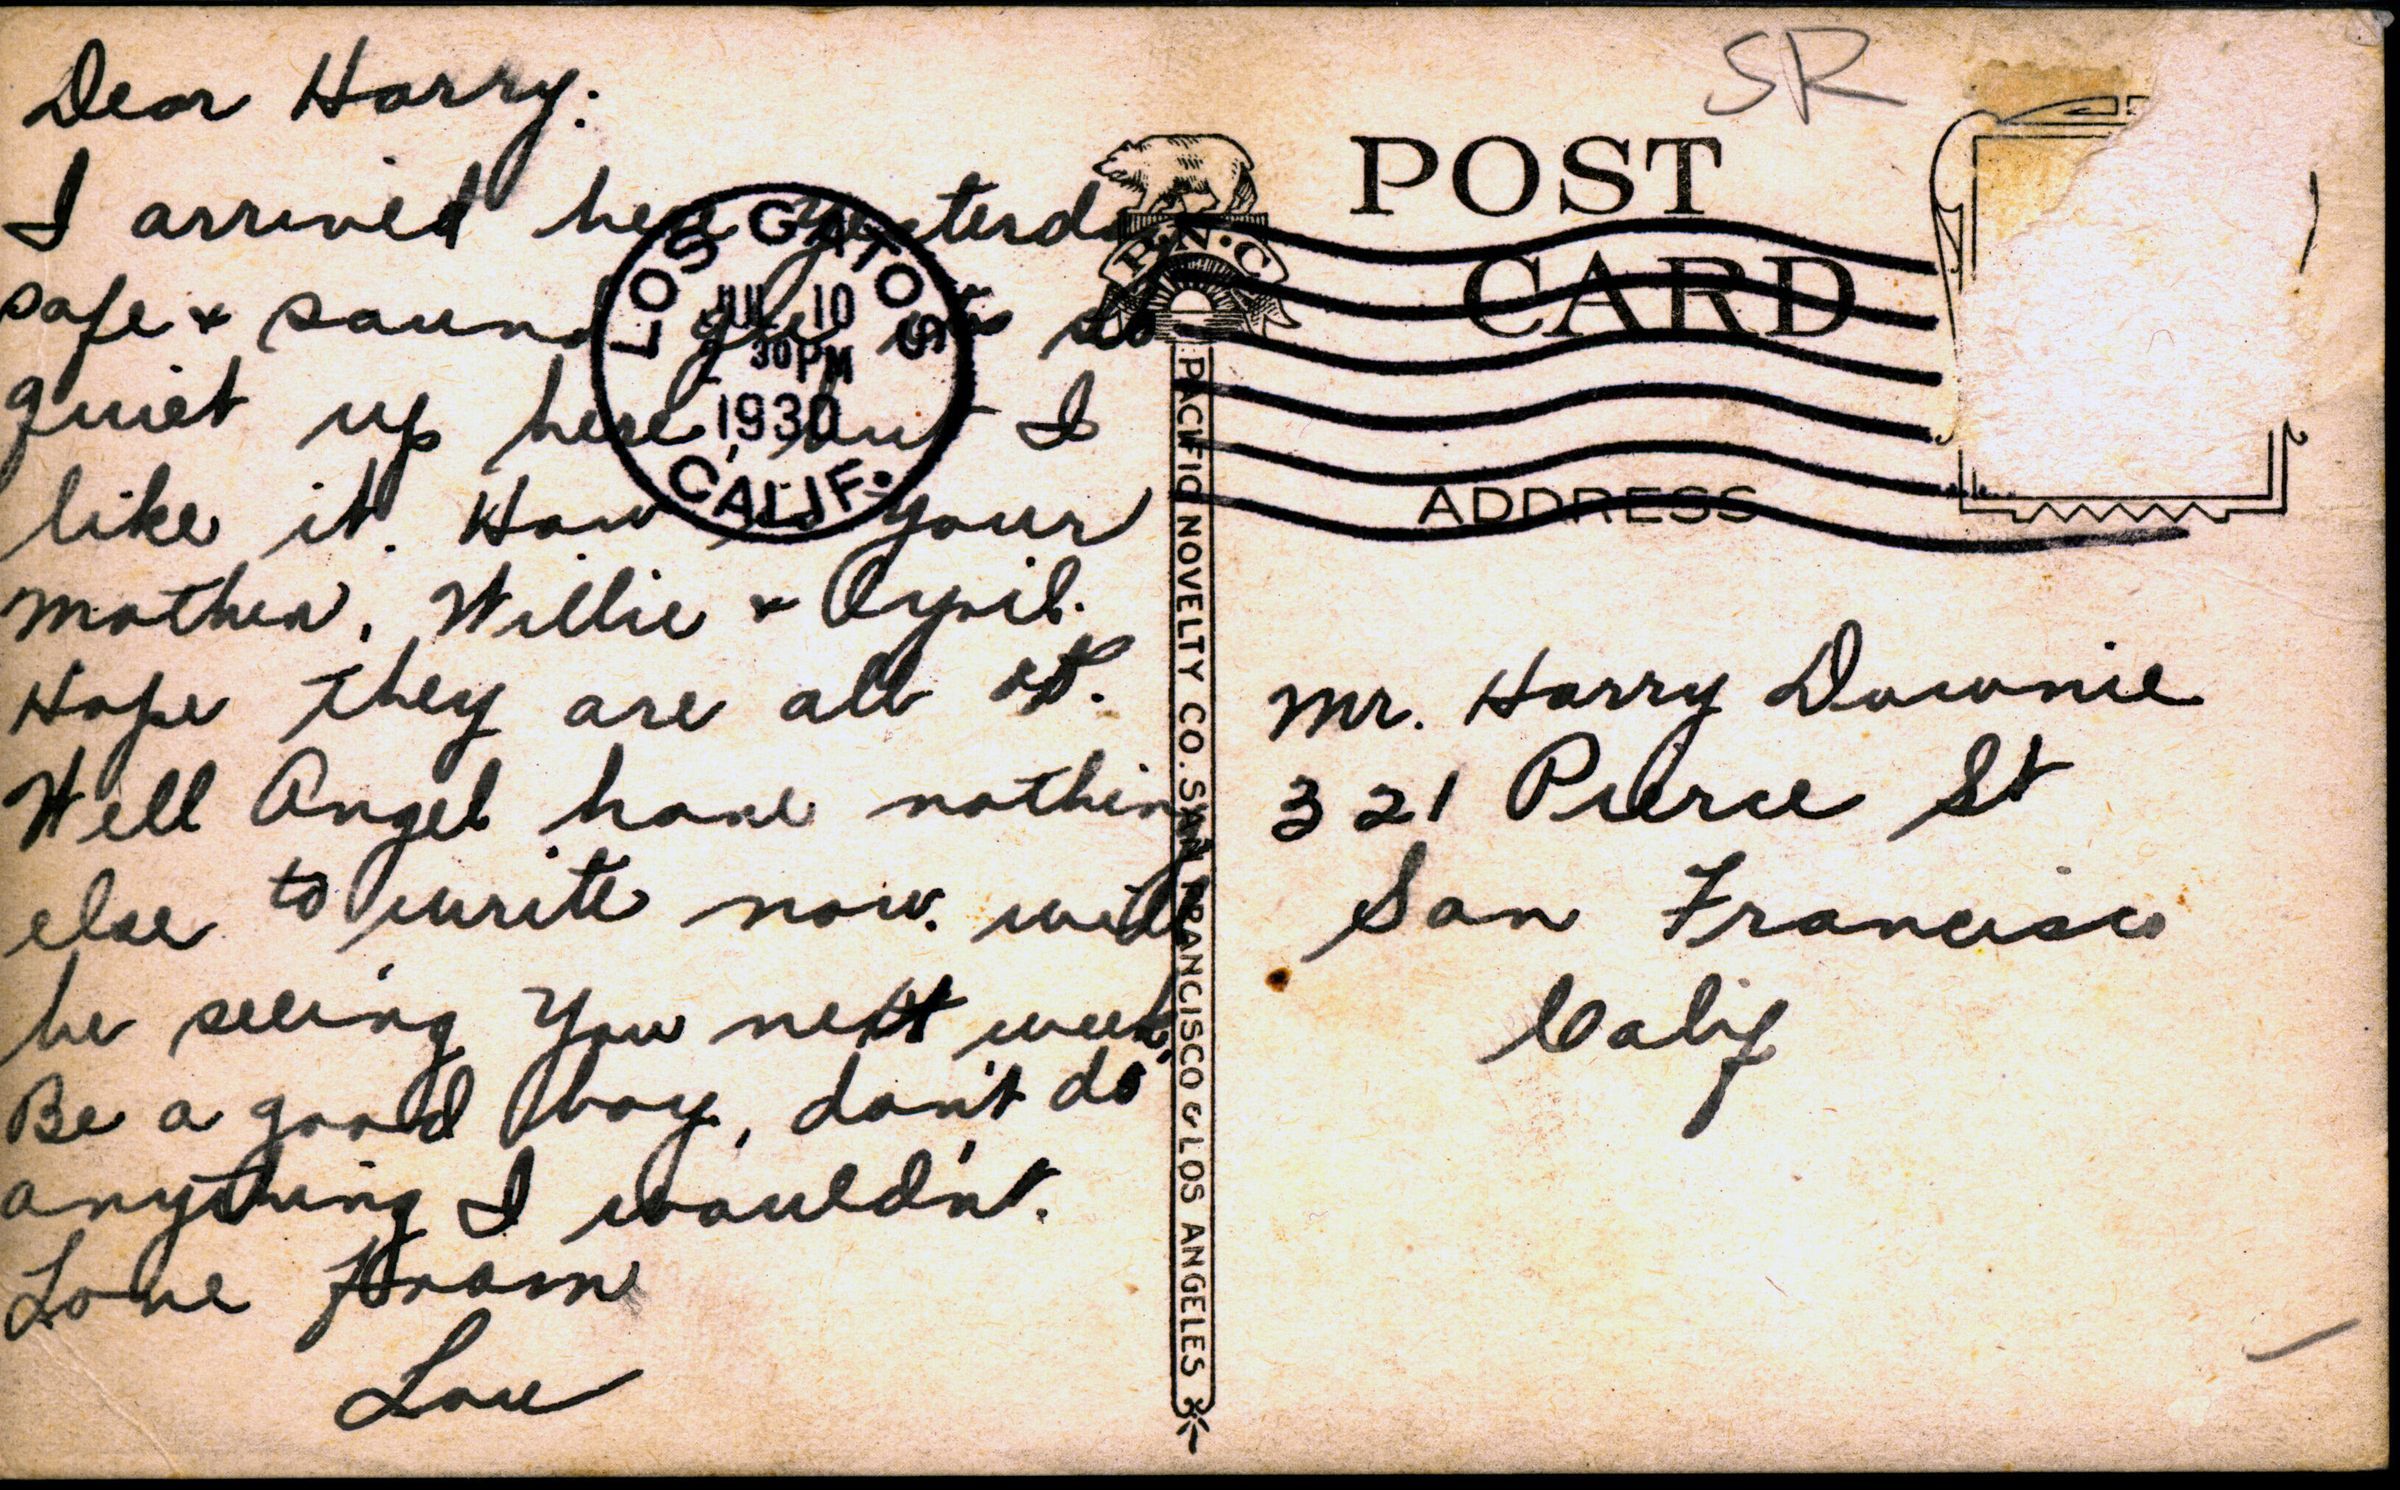 Dear Harry:
I arrived here yesterday
safe & sound gee its so
quiet up here, but I
like it. How is your
mother, Willie & April.
Hope they are all ok.
Well Angel have nothing
else to write now. will
be seeing you next week.
Be a good boy, don't do
anything I wouldn't.
Love from
Lou
LOS GATOS
JUL 10
30PM
1930
CALIF.
SR
POST
CARD
P.N.C
ADDRESS
PACIFIC NOVELTY CO. SAN FRANCISCO & LOS ANGELES
Mr. Harry Downie
321 Pierce St
San Francisco
Calif